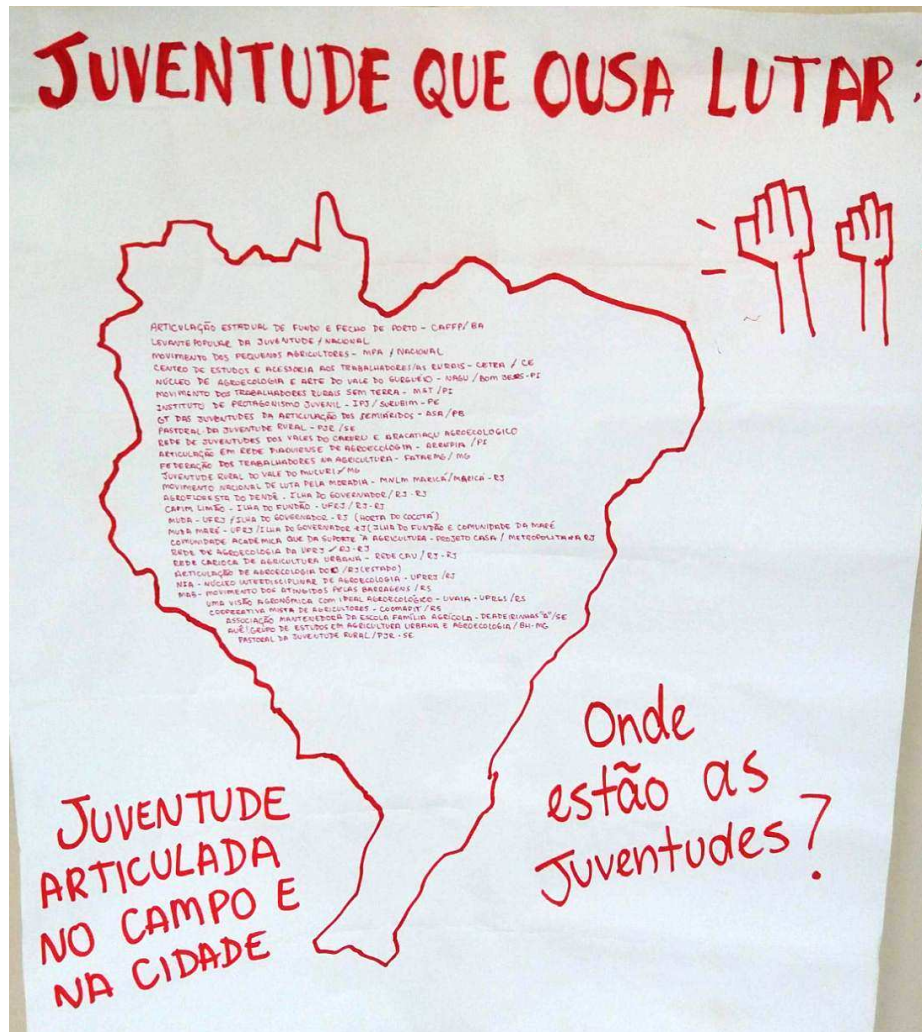 JUVENTUDE QUE OUSA LUTAR
ARTICULAÇÃO ESTADUAL DE FUNDO E FECHO DE PORTO - CAFFP/BA
LEVANTE POPULAR DA JUVENTUDE / NACIONAL
MOVIMENTO DOS PEQUENOS AGRICULTORES - MPA / NACIONAL
CENTRO DE ESTUDOS E ACESSORIA AOS TRABALHADORES/AS RURAIS - CETRA / CE
NÚCLEO DE AGROECOLOGIA E ARTE DO VALE DO GURGUEIO - NAGU / BOM JESUS - PI
MOVIMENTO DOS TRABALHADORES RURAIS SEM TERRA - MST / PI
INSTITUTO DE PROTAGONISMO JUVENIL - IPJ / SURUBIM - PE
GT DAS JUVENTUDES DA ARTICULAÇÃO DOS SEMIÁRIDOS - ASA / PB
PASTORAL DA JUVENTUDE RURAL - PJR / SE
REDE DE JUVENTUDES DOS VALES DO E ARACATIAÇU AGROECOLOGICO
ARTICULAÇÃO EM REDE PIAUIENSE DE AGROECOLOGIA - / PI
FEDERAÇÃO DOS TRABALHADORES NA AGRICULTURA - FATAEMG / MG
JUVENTUDE RURAL DO VALE DO MUCURI / MG
MOVIMENTO NACIONAL DE LUTA PELA MORADIA - MNLM MARICÁ / MARICÁ - RJ
AGROFLORESTA DO DENDÊ - ILHA DO GOVERNADOR / RJ - RJ
CAPIM LIMÃO - ILHA DO FUNDÃO - UFRJ / RJ - RJ
MUDA - UFRJ / ILHA DO GOVERNADOR - RJ (HORTA DO COCOTÁ)
MUDA MARÉ - UFRJ / ILHA DO GOVERNADOR RJ (ILHA DO FUNDÃO E COMUNIDADE DA MARÉ
COMUNIDADE ACADÊMICA QUE DA SUPORTE À AGRICULTURA - PROJETO CASA / METROPOLITANA RJ
REDE DE AGROECOLOGIA DA UFRJ / RJ - RJ
REDE CARIOCA DE AGRICULTURA URBANA - REDE CAU / RJ - RJ
ARTICULAÇÃO DE AGROECOLOGIA DO / RJ (ESTADO)
NIA - NÚCLEO INTERDISCIPLINAR DE AGROECOLOGIA - UFRRJ / RJ
MAB - MOVIMENTO DOS ATINGIDOS PELAS BARRAGENS / RS
UMA VISÃO AGRONÔMICA COM IDEAL AGROECOLÓGICO - UVAIA - UFRGS / RS
COOPERATIVA MISTA DE AGRICULTORES - COOMAFIT / RS
ASSOCIAÇÃO MANTENEDORA DA ESCOLA FAMÍLIA AGRÍCOLA - "A" / SE
AUÊ! GRUPO DE ESTUDOS EM AGRICULTURA URBANA E AGROECOLOGIA / BH - MG
PASTORAL DA JUVENTUDE RURAL / PJR - SE
Onde
estão as
Juventudes?
JUVENTUDE
ARTICULADA
NO CAMPO E
NA CIDADE